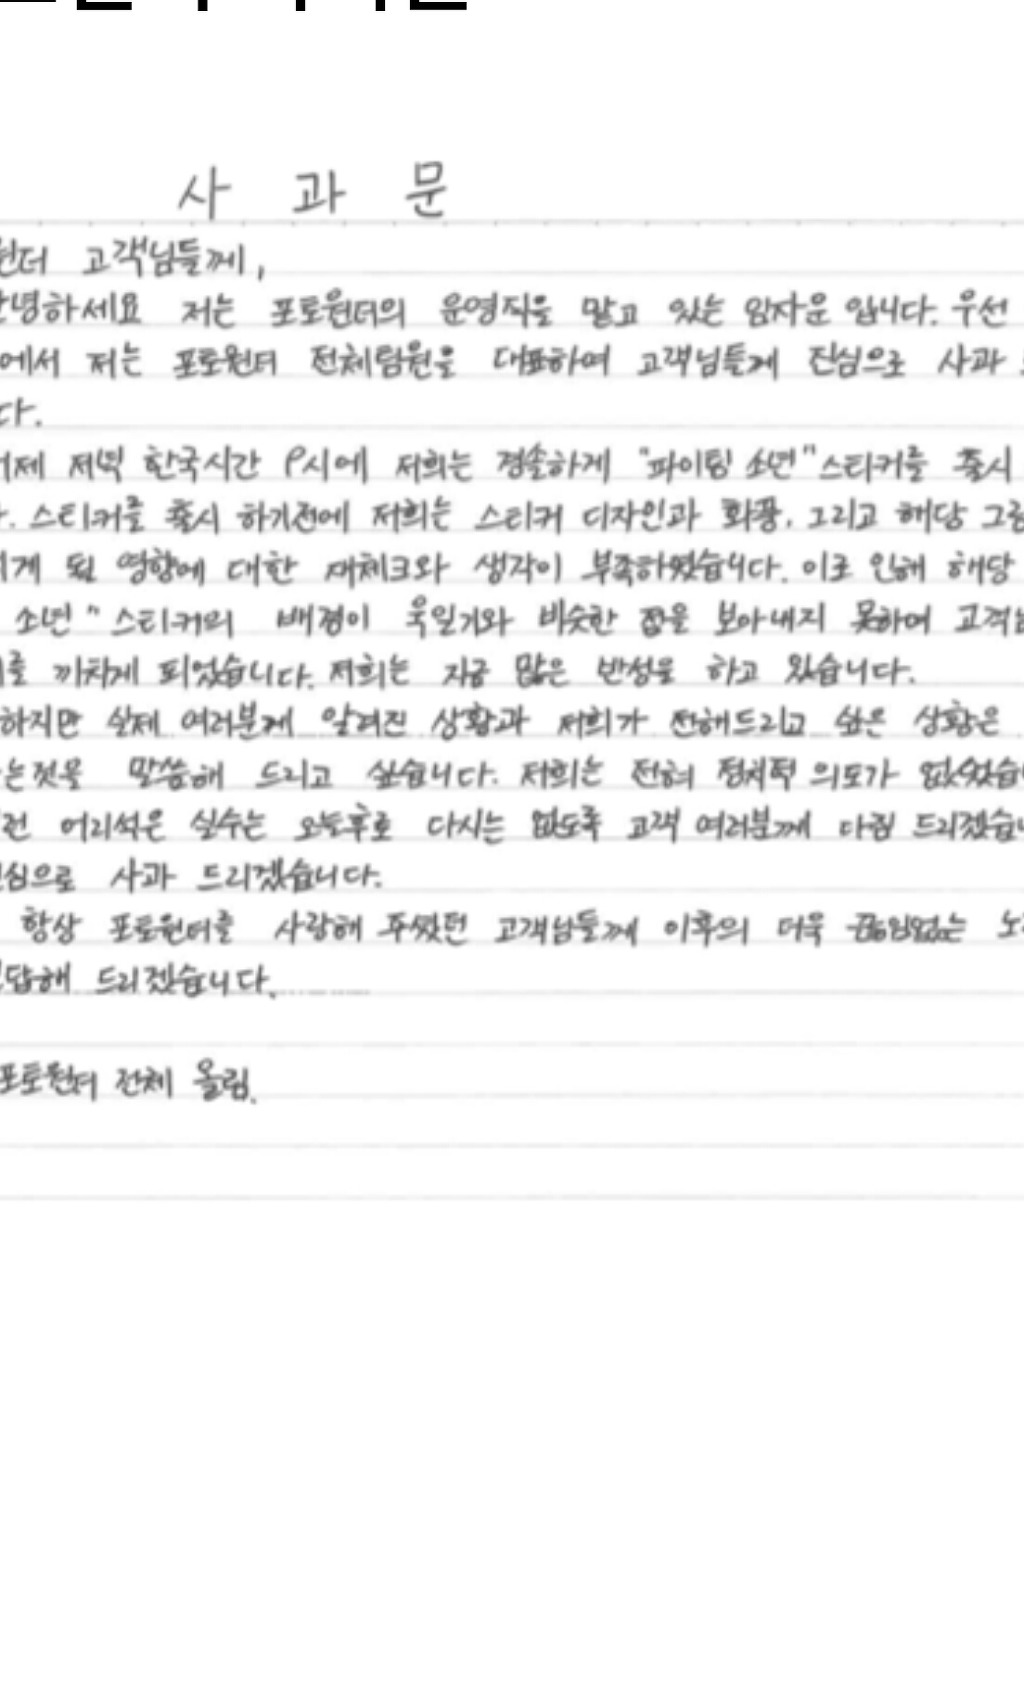 사 과 문
원더 고객님들께,
안녕하세요 저는 포토원더의 운영직을 맡고 있는 임자운 입니다. 우선
에서 저는 포토원더 전체팀원을 대표하여 고객님들게 진심으로 사과
다.
어제 저녁 한국시간 P시에 저희는 경솔하게 "파이팅 소년"스티커를 출시
. 스티커를 출시 하기전에 저희는 스티커 디자인과 화풍, 그리고 해당 그림
게 될 영향에 대한 재체크와 생각이 부족하였습니다. 이로 인해 해당
소년" 스티커의 배경이 욱일기와 비슷한 점을 보아내지 못하여 고객님
를 끼치게 되었습니다. 저희는 지금 많은 반성을 하고 있습니다.
하지만 실제 여러분께 알려진 상황과 저희가 전해드리고 싶은 상황은
는것을 말씀해 드리고 싶습니다. 저희는 전혀 정치적 의도가 없었습니
런 어리석은 실수는 오늘후로 다시는 없도록 고객 여러분께 다짐 드리겠습니
진심으로 사과 드리겠습니다.
항상 포토원더를 사랑해 주셨던 고객님들께 이후의 더욱 끊임없는
보답해 드리겠습니다.
포토원더 전체 올림.